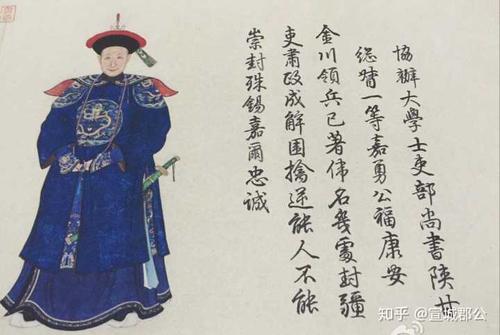 協辦大學士吏部尚書陝甘
總督一等嘉勇公福康安
金川領兵已著偉名幾處封疆
吏肅政成解圍擒逆能人不能
崇封殊錫嘉爾忠誠
知乎 @宣城郡公